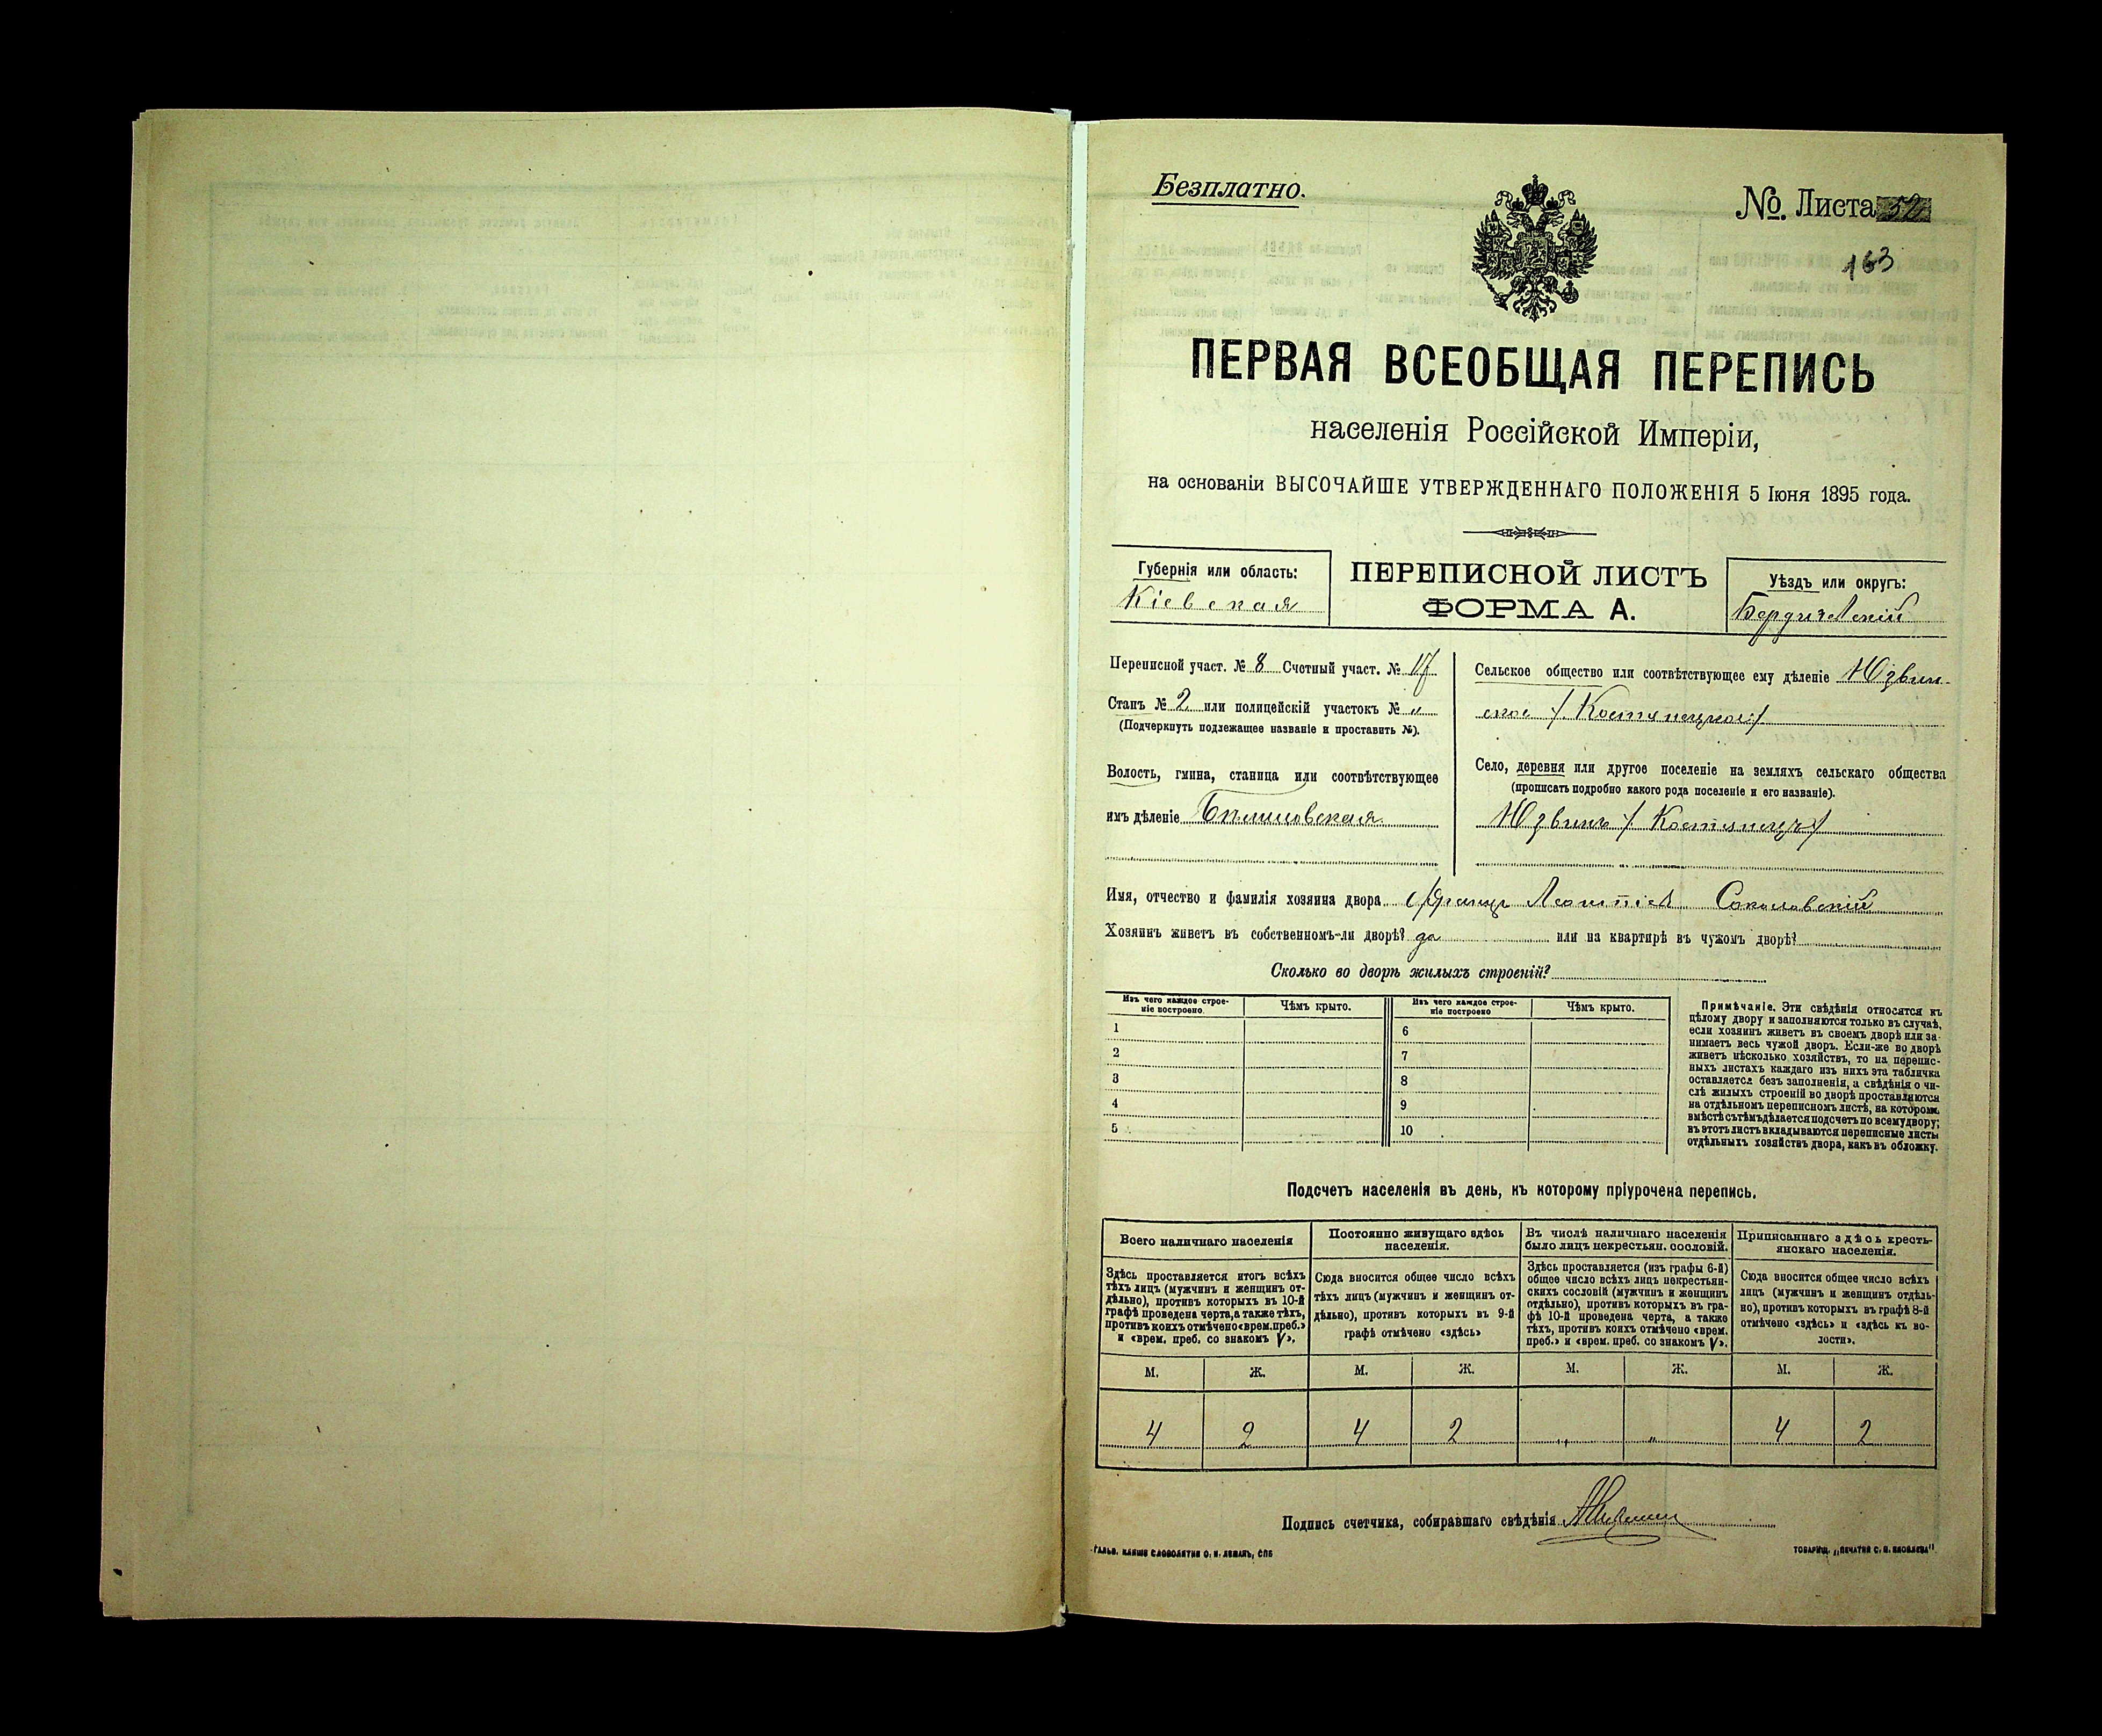 Безплатно.
№. Листа 52
163
ПЕРВАЯ ВСЕОБЩАЯ ПЕРЕПИСЬ
населенія Россійской Имперіи,
на основаніи ВЫСОЧАЙШЕ УТВЕРЖДЕННАГО ПОЛОЖЕНІЯ 5 Іюня 1895 года.
Губернія или область:
Кіевская
ПЕРЕПИСНОЙ ЛИСТЪ
ФОРМА А.
Уѣздъ или округъ:
Бердичевскій
Переписной участ. № 8 Счетный участ. №
Станъ № 2 или полицейскій участокъ № „
(Подчеркнуть подлежащее названіе и проставить №).
Волость, гмина, станица или соотвѣтствующее
имъ дѣленіе
Сельское общество или соотвѣтствующее ему дѣленіе Юзвин-
ское /Костянецкое/
Село, деревня или другое поселеніе на земляхъ сельскаго общества
(прописать подробно какого рода поселеніе и его названіе).
Юзвинъ /Костянецъ/
Имя, отчество и фамилія хозяина двора Францъ Леонтіев Соколовскій
Хозяинъ живетъ въ собственномъ-ли дворѣ? да или на квартирѣ въ чужомъ дворѣ?
Сколько во дворѣ жилыхъ строеній?
Изъ чего каждое строе-
ніе построено.
Чѣмъ крыто.
Изъ чего каждое строе-
ніе построено
Чѣмъ крыто.
1
6
2
7
3
8
4
9
5
10
Примѣчаніе. Эти свѣдѣнія относятся къ
цѣлому двору и заполняются только въ случаѣ,
если хозяинъ живетъ въ своемъ дворѣ или за-
нимаетъ весь чужой дворъ. Если-же во дворѣ
живетъ нѣсколько хозяйствъ, то на перепис-
ныхъ листахъ каждаго изъ нихъ эта табличка
оставляется безъ заполненія, а свѣдѣнія о чи-
слѣ жилыхъ строеній во дворѣ проставляются
на отдѣльномъ переписномъ листѣ, на которомъ
вмѣстѣ съ тѣмъ дѣлается подсчетъ по всему двору;
въ этотъ листъ вкладываются переписные листы
отдѣльныхъ хозяйствъ двора, какъ въ обложку.
Подсчетъ населенія въ день, къ которому пріурочена перепись.
Всего наличнаго населенія
Постоянно живущаго здѣсь
населенія.
Въ числѣ наличнаго населенія
было лицъ некрестьян. сословій.
Приписаннаго здѣсь кресть-
янскаго населенія.
Здѣсь проставляется итогъ всѣхъ
тѣхъ лицъ (мужчинъ и женщинъ от-
дѣльно), противъ которыхъ въ 10-й
графѣ проведена черта, а также тѣхъ,
противъ коихъ отмѣчено «врем. преб.»
и «врем. преб. со знакомъ V».
Сюда вносится общее число всѣхъ
тѣхъ лицъ (мужчинъ и женщинъ от-
дѣльно), противъ которыхъ въ 9-й
графѣ отмѣчено «здѣсь»
Здѣсь проставляется (изъ графы 6-й)
общее число всѣхъ лицъ некрестьян-
скихъ сословій (мужчинъ и женщинъ
отдѣльно), противъ которыхъ въ гра-
фѣ 10-й проведена черта, а также
тѣхъ, противъ коихъ отмѣчено «врем.
преб.» и «врем. преб. со знакомъ V».
Сюда вносится общее число всѣхъ
лицъ (мужчинъ и женщинъ отдѣль-
но), противъ которыхъ въ графѣ 8-й
отмѣчено «здѣсь» и «здѣсь къ во-
лости».
М. Ж. М. Ж. М. Ж. М. Ж.
4 2 4 2 „ „ 4 2
Подпись счетчика, собиравшаго свѣдѣнія
ГАЛЬВ. КЛИШЕ СЛОВОЛИТНИ О. И. ЛЕМАНЪ, СПБ
ТОВАРИЩ. „ПЕЧАТНЯ С. П. ЯКОВЛЕВА"